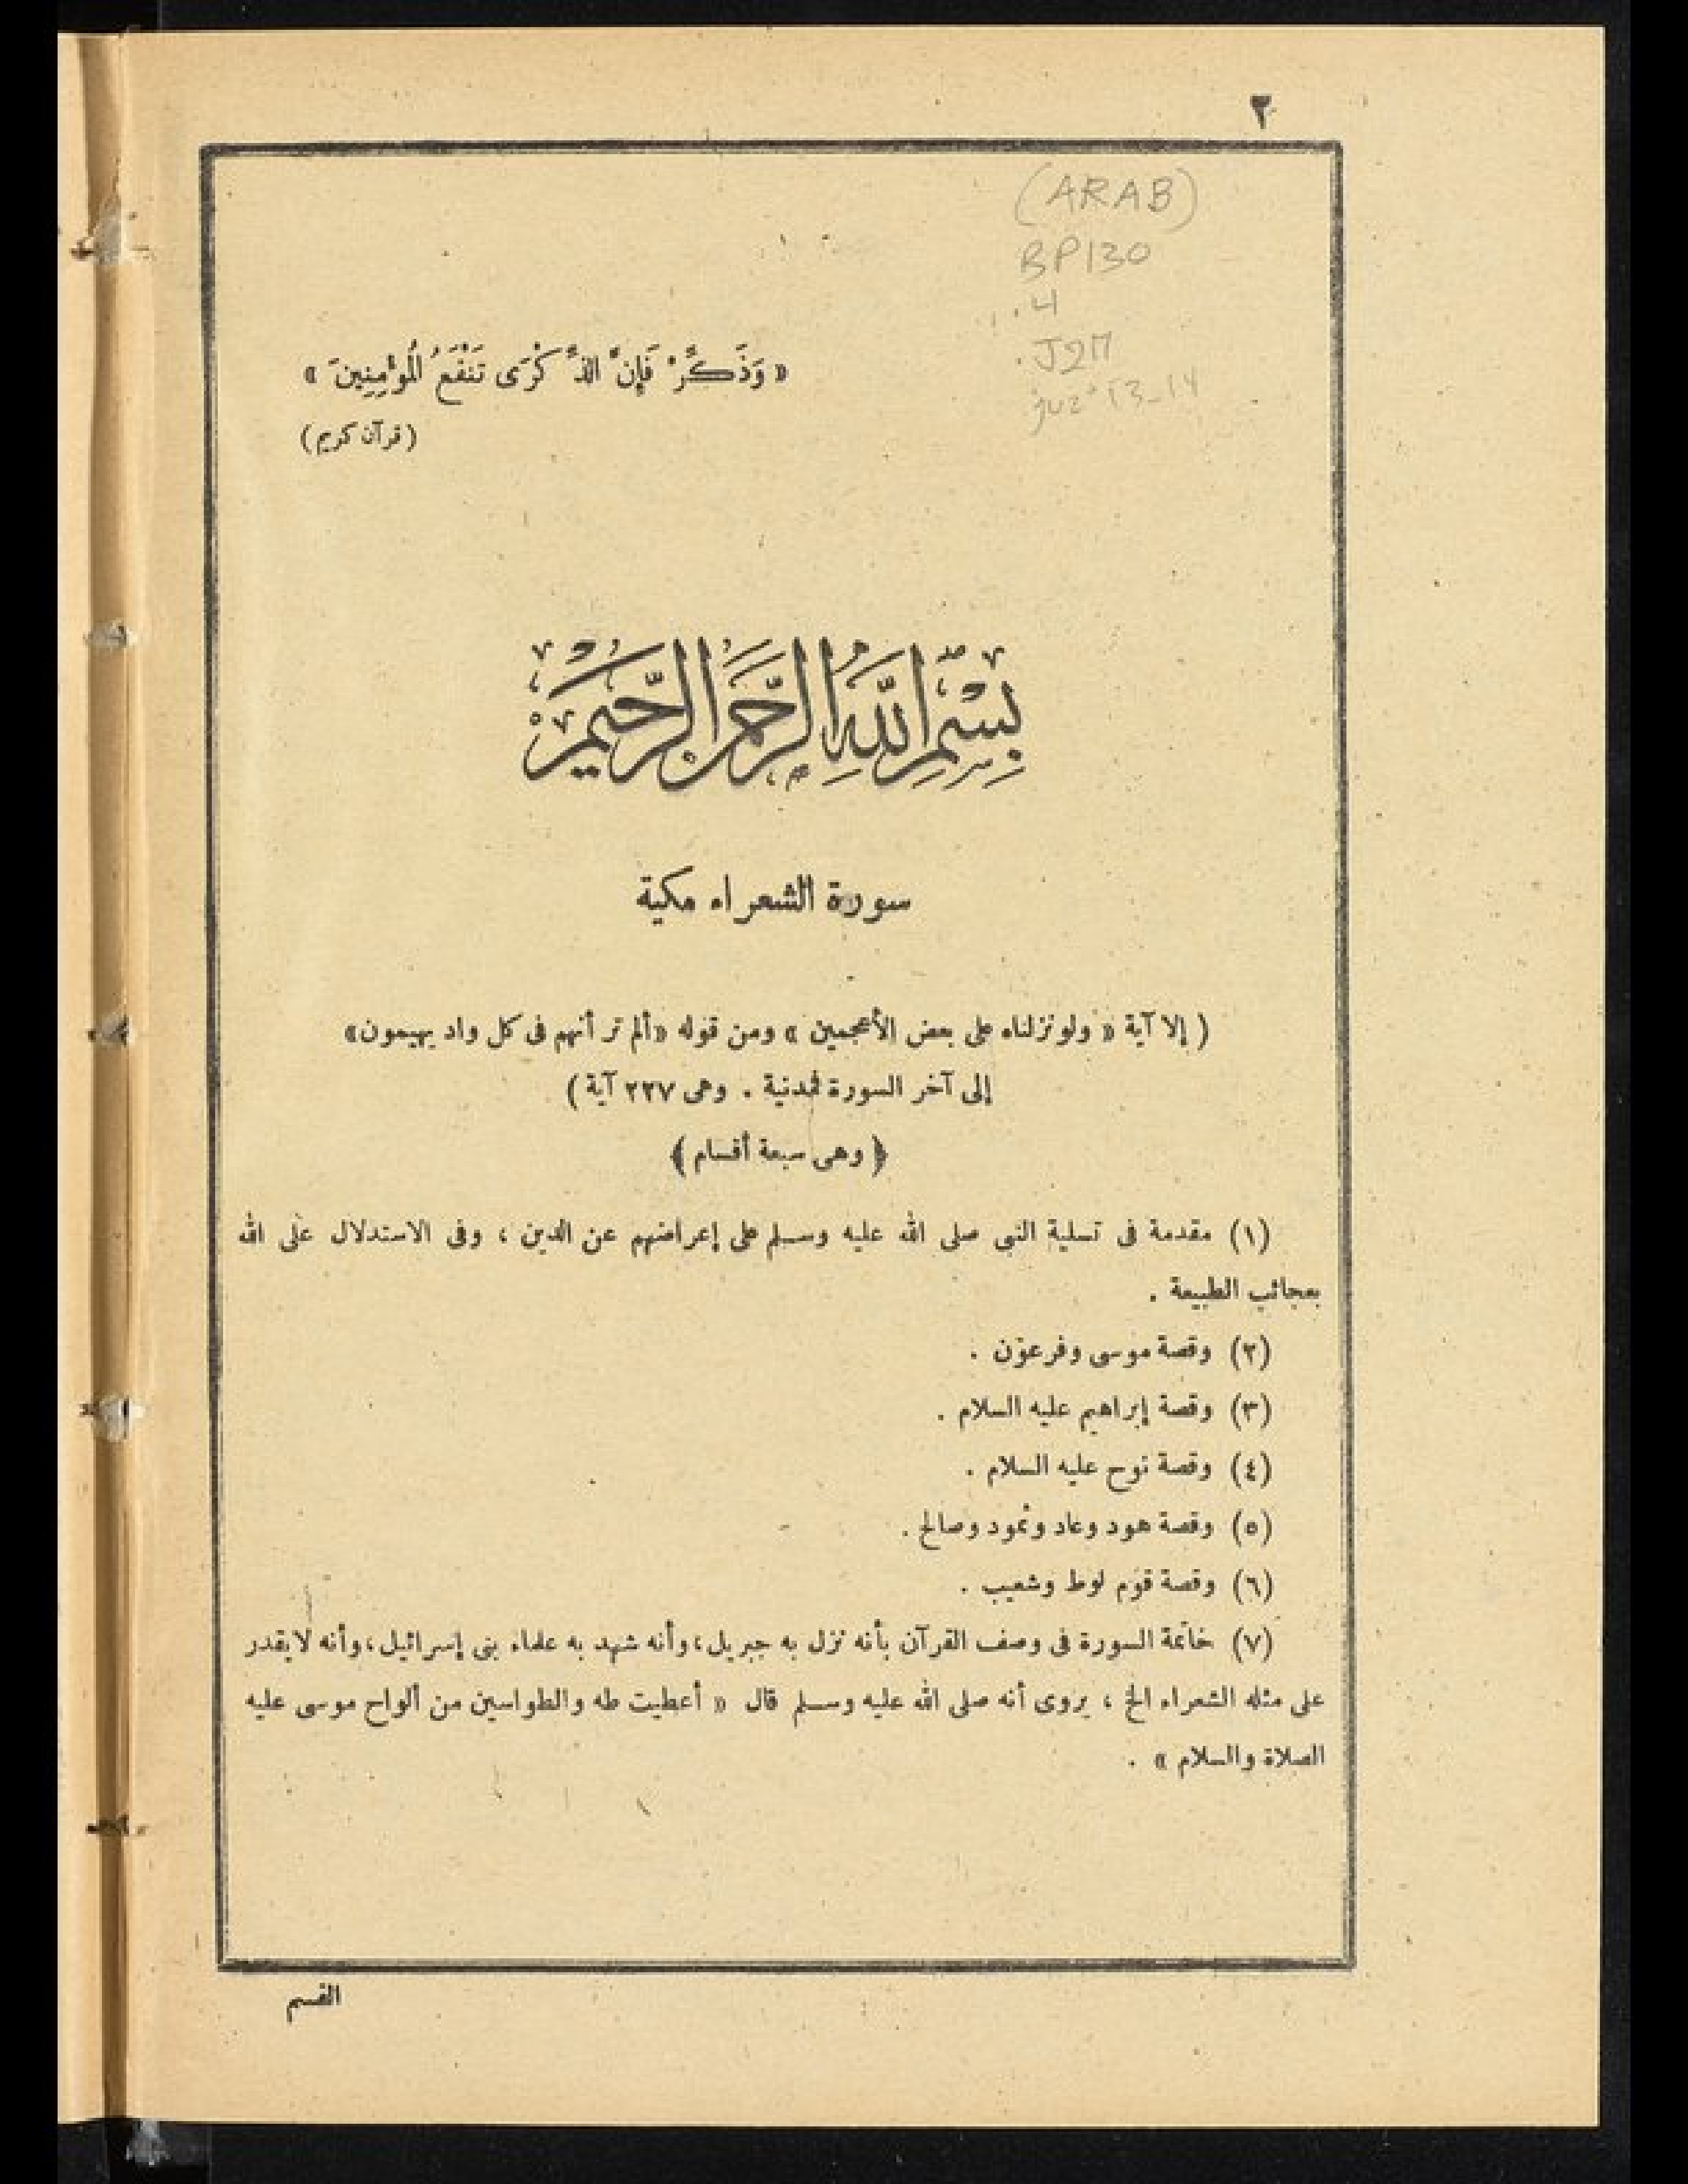 ٢
(ARAB)
BP130
.4
.J27
juz' 13-14
« وَذَكِّرْ فَإِنَّ الذِّكْرَى تَنْفَعُ الْمُؤْمِنِينَ »
(قرآن كريم)
بِسْمِ اللَّهِ الرَّحْمَنِ الرَّحِيمِ
سورة الشعراء مكية
( إلا آية « ولو نزلناه على بعض الأعجمين » ومن قوله «ألم تر أنهم فى كل واد يهيمون»
إلى آخر السورة فمدنية . وهى ٢٢٧ آية )
﴿ وهى سبعة أقسام ﴾
(١) مقدمة فى تسلية النبى صلى الله عليه وسلم على إعراضهم عن الدين ، وفى الاستدلال على الله
بعجائب الطبيعة .
(٢) وقصة موسى وفرعون .
(٣) وقصة إبراهيم عليه السلام .
(٤) وقصة نوح عليه السلام .
(٥) وقصة هود وعاد وثمود وصالح .
(٦) وقصة قوم لوط وشعيب .
(٧) خاتمة السورة فى وصف القرآن بأنه نزل به جبريل ، وأنه شهد به علماء بنى إسرائيل ، وأنه لا يقدر
على مثله الشعراء الخ ، يروى أنه صلى الله عليه وسلم قال « أعطيت طه والطواسين من ألواح موسى عليه
الصلاة والسلام » .
القسم